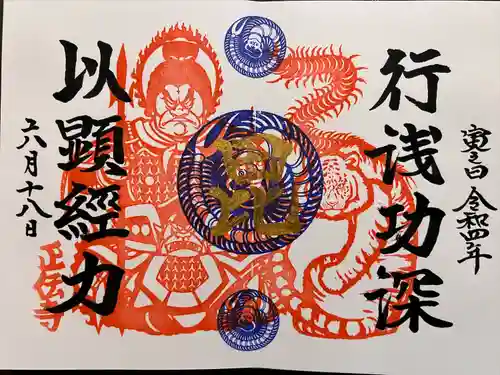 寅之日 令和四年
行浅功深
以顯經力
六月十八日
正伝寺